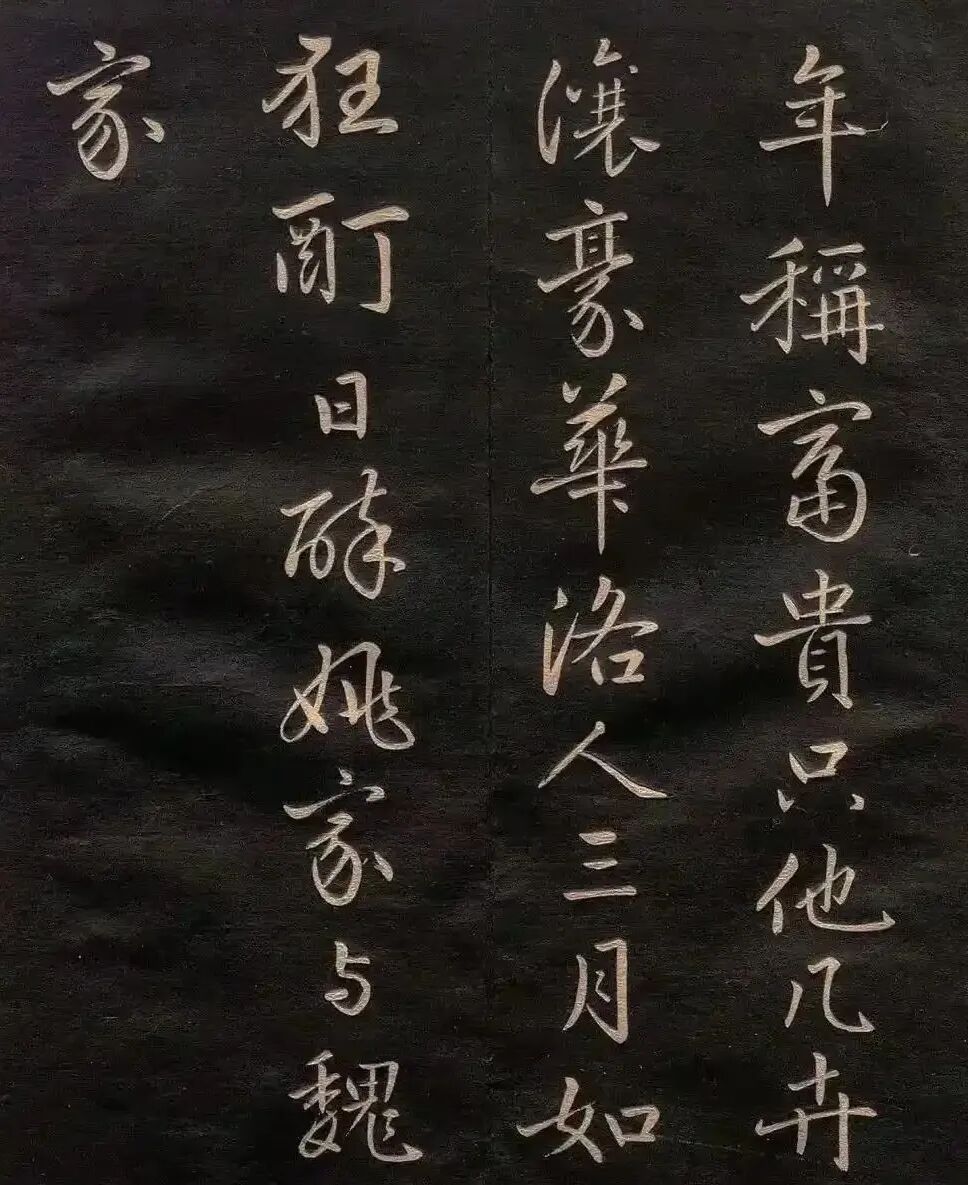 年稱富貴只他几卉
讓豪華洛人三月如
狂酊日醉姚家与魏
家